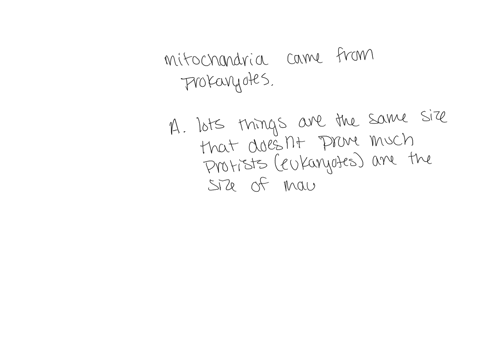 mitochandria came from
prokaryotes.
A. lots things are the same size
that doesnt prove much
Protists (eukaryotes) are the
size of mau